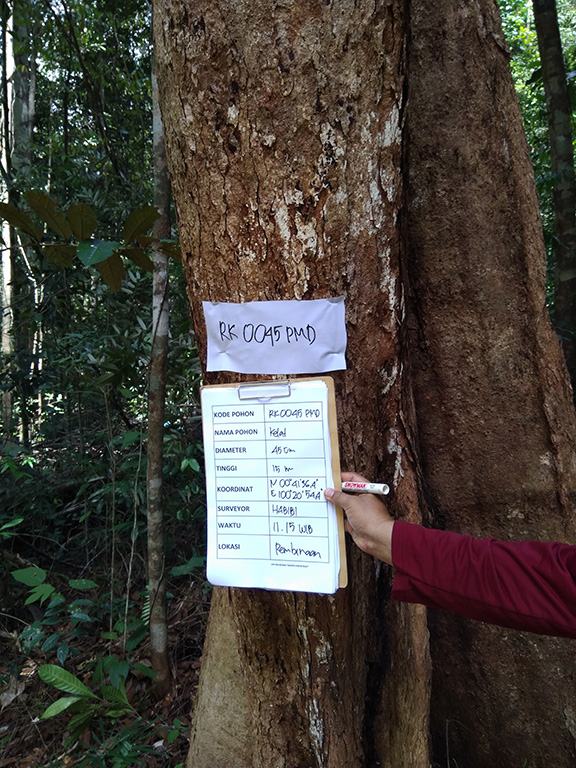 RK 0045 PMD
KODE POHON RK 0045 PMD
NAMA POHON Kelat
DIAMETER 45 cm
TINGGI 15 m
KOORDINAT N 00°41'36,4"
E 100°20'54,4"
SURVEYOR HABIBI
WAKTU 11.15 WIB
LOKASI Rembunaan
SNOWMAN